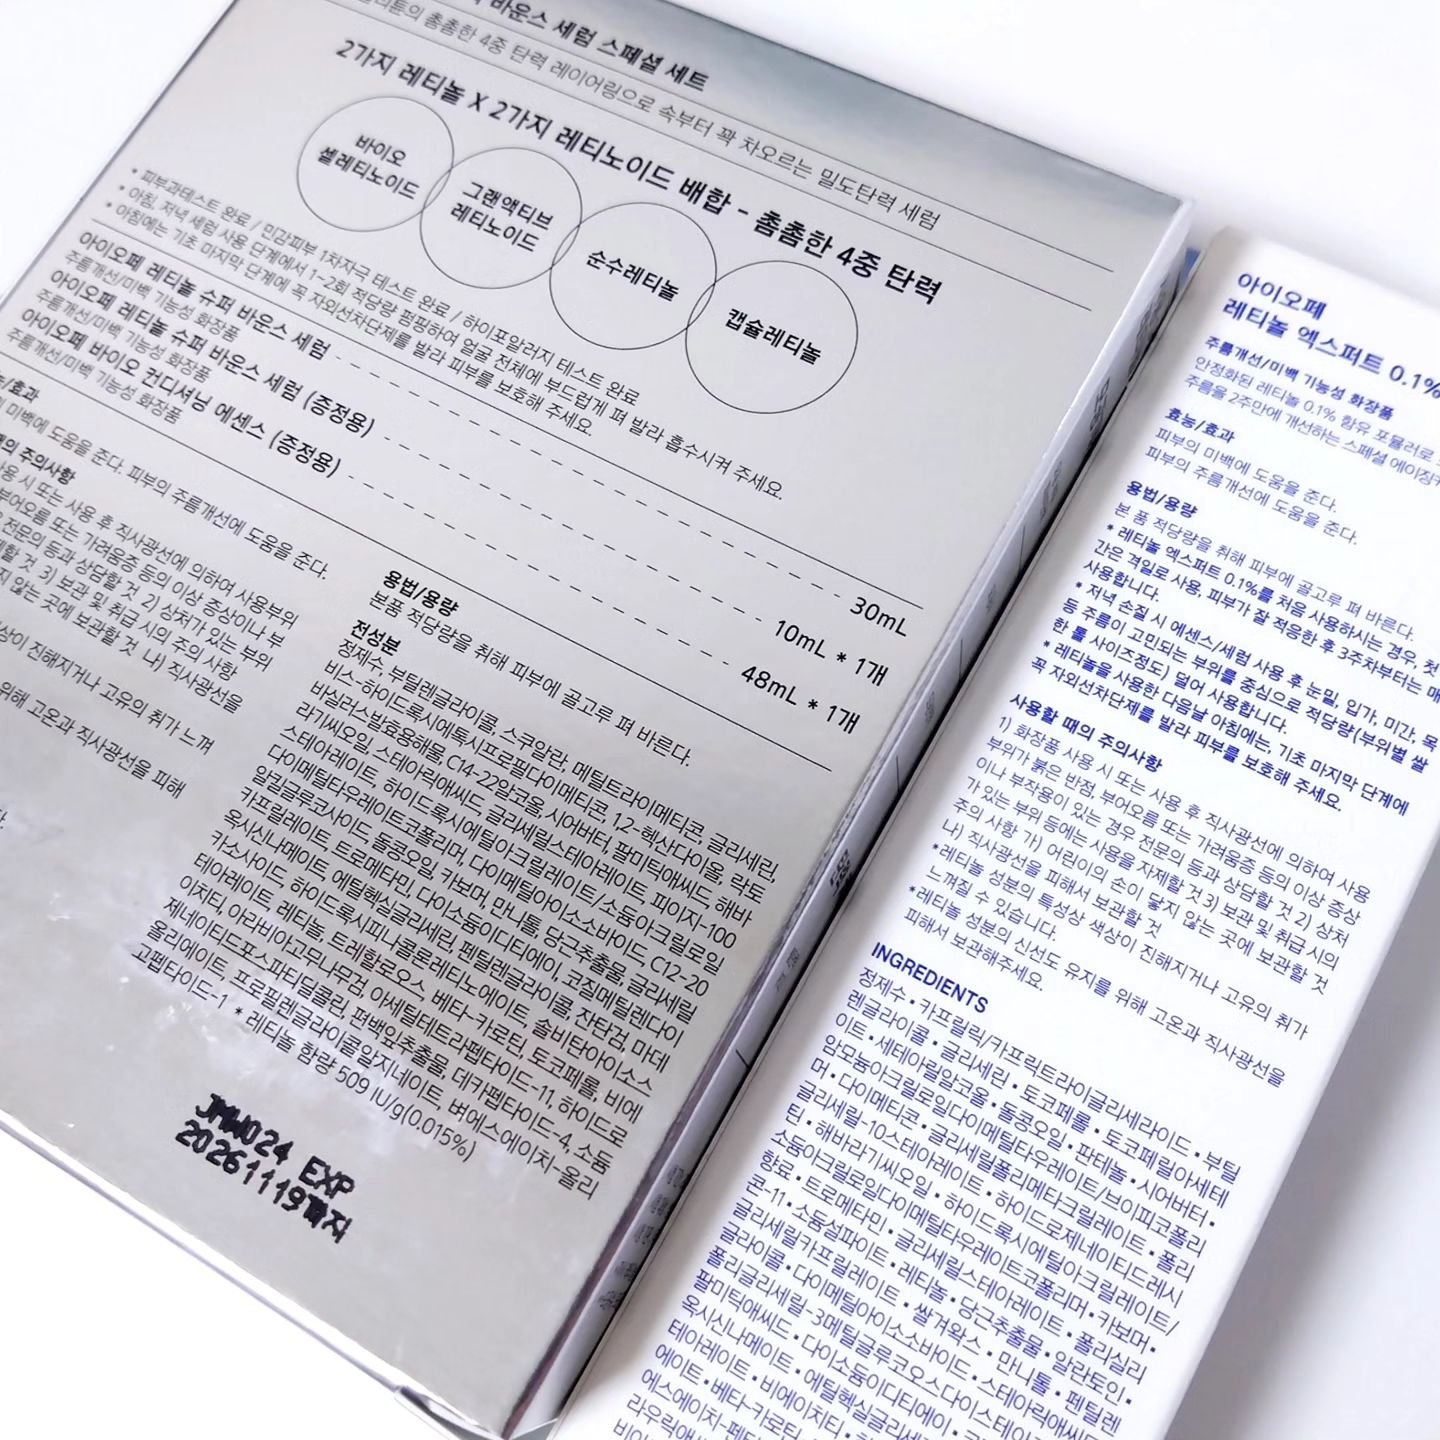 바운스 세럼 스페셜 세트
촘촘한 4중 탄력 레이어링으로 속부터 꽉 차오르는 밀도탄력 세럼
2가지 레티놀 X 2가지 레티노이드 배합 - 촘촘한 4중 탄력
바이오
셀레티노이드
그랜액티브
레티노이드
순수레티놀
캡슐레티놀
* 피부과테스트 완료 / 민감피부 1차자극 테스트 완료 / 하이포알러지 테스트 완료
* 아침, 저녁 세럼 사용 단계에서 1~2회 적당량 펌핑하여 얼굴 전체에 부드럽게 펴 발라 흡수시켜 주세요.
* 아침에는 기초 마지막 단계에 꼭 자외선차단제를 발라 피부를 보호해 주세요.
아이오페 레티놀 슈퍼 바운스 세럼 30mL
주름개선/미백 기능성 화장품
아이오페 레티놀 슈퍼 바운스 세럼 (증정용) 10mL * 1개
주름개선/미백 기능성 화장품
아이오페 바이오 컨디셔닝 에센스 (증정용) 48mL * 1개
주름개선/미백 기능성 화장품
/효과
미백에 도움을 준다. 피부의 주름개선에 도움을 준다.
주의사항
사용 시 또는 사용 후 직사광선에 의하여 사용부위
부어오름 또는 가려움증 등의 이상 증상이나 부
전문의 등과 상담할 것 2) 상처가 있는 부위
할 것 3) 보관 및 취급 시의 주의 사항
않는 곳에 보관할 것 나) 직사광선을
상이 진해지거나 고유의 취가 느껴
위해 고온과 직사광선을 피해
용법/용량
본품 적당량을 취해 피부에 골고루 펴 바른다.
전성분
정제수, 부틸렌글라이콜, 스쿠알란, 메틸트라이메티콘, 글리세린,
비스-하이드록시에톡시프로필다이메티콘, 1,2-헥산다이올, 락토
바실러스발효용해물, C14-22알코올, 시어버터, 팔미틱애씨드, 해바
라기씨오일, 스테아릭애씨드, 글리세릴스테아레이트, 피이지-100
스테아레이트, 하이드록시에틸아크릴레이트/소듐아크릴로일
다이메틸타우레이트코폴리머, 다이메틸아이소소바이드, C12-20
알킬글루코사이드, 돌콩오일, 카보머, 만니톨, 당근추출물, 글리세릴
카프릴레이트, 트로메타민, 다이소듐이디티에이, 코질메틸렌다이
옥시신나메이트, 에틸헥실글리세린, 펜틸렌글라이콜, 잔탄검, 마데
카소사이드, 하이드록시피나콜론레티노에이트, 솔비탄아이소스
테아레이트, 레티놀, 트레할로오스, 베타-카로틴, 토코페롤, 비에
이치티, 아라비아고무나무검, 아세틸테트라펩타이드-11, 하이드로
제네이티드포스파티딜콜린, 편백잎추출물, 데카펩타이드-4, 소듐
올리에이트, 프로필렌글라이콜알지네이트, 벼에스에이치-올리
고펩타이드-1 * 레티놀 함량 509 IU/g(0.015%)
JMW024 EXP
20261119까지
아이오페
레티놀 엑스퍼트 0.1%
주름개선/미백 기능성 화장품
안정화된 레티놀 0.1% 함유 포뮬러로
주름을 2주만에 개선하는 스페셜 에이징
효능/효과
피부의 미백에 도움을 준다.
피부의 주름개선에 도움을 준다.
용법/용량
본 품 적당량을 취해 피부에 골고루 펴 바른다.
* 레티놀 엑스퍼트 0.1%를 처음 사용하시는 경우, 첫
간은 격일로 사용, 피부가 잘 적응한 후 3주차부터는 매
사용합니다.
* 저녁 손질 시 에센스/세럼 사용 후 눈밑, 입가, 미간, 목
등 주름이 고민되는 부위를 중심으로 적당량(부위별 쌀
한 톨 사이즈정도) 덜어 사용합니다.
* 레티놀을 사용한 다음날 아침에는, 기초 마지막 단계에
꼭 자외선차단제를 발라 피부를 보호해 주세요.
사용할 때의 주의사항
1) 화장품 사용 시 또는 사용 후 직사광선에 의하여 사용
부위가 붉은 반점, 부어오름 또는 가려움증 등의 이상 증상
이나 부작용이 있는 경우 전문의 등과 상담할 것 2) 상처
가 있는 부위 등에는 사용을 자제할 것 3) 보관 및 취급 시의
주의 사항 가) 어린이의 손이 닿지 않는 곳에 보관할 것
나) 직사광선을 피해서 보관할 것
*레티놀 성분의 특성상 색상이 진해지거나 고유의 취가
느껴질 수 있습니다.
*레티놀 성분의 신선도 유지를 위해 고온과 직사광선을
피해서 보관해주세요.
INGREDIENTS
정제수 • 카프릴릭/카프릭트라이글리세라이드 • 부틸
렌글라이콜 • 글리세린 • 토코페롤 • 토코페릴아세테
이트 • 세테아릴알코올 • 돌콩오일 • 판테놀 • 시어버터 •
암모늄아크릴로일다이메틸타우레이트/브이피코폴리
머 • 다이메티콘 • 글리세릴폴리메타크릴레이트 • 폴리
글리세릴-10스테아레이트 • 하이드로제네이티드레시
틴 • 해바라기씨오일 • 하이드록시에틸아크릴레이트/
소듐아크릴로일다이메틸타우레이트코폴리머 • 카보머 •
향료 • 트로메타민 • 글리세릴스테아레이트 • 폴리실리
콘-11 • 소듐설파이트 • 레티놀 • 당근추출물 • 알란토인 •
글리세릴카프릴레이트 • 쌀겨왁스 • 만니톨 • 펜틸렌
글라이콜 • 다이메틸아이소소바이드 • 스테아릭애씨드
폴리글리세릴-3메틸글루코오스다이스테아
팔미틱애씨드 • 다이소듐이디티에이
옥시신나메이트 • 에틸헥실글리세
테아레이트 • 비에이치티
에이트 • 베타-카로틴
에스에이치-펜
라우릭애